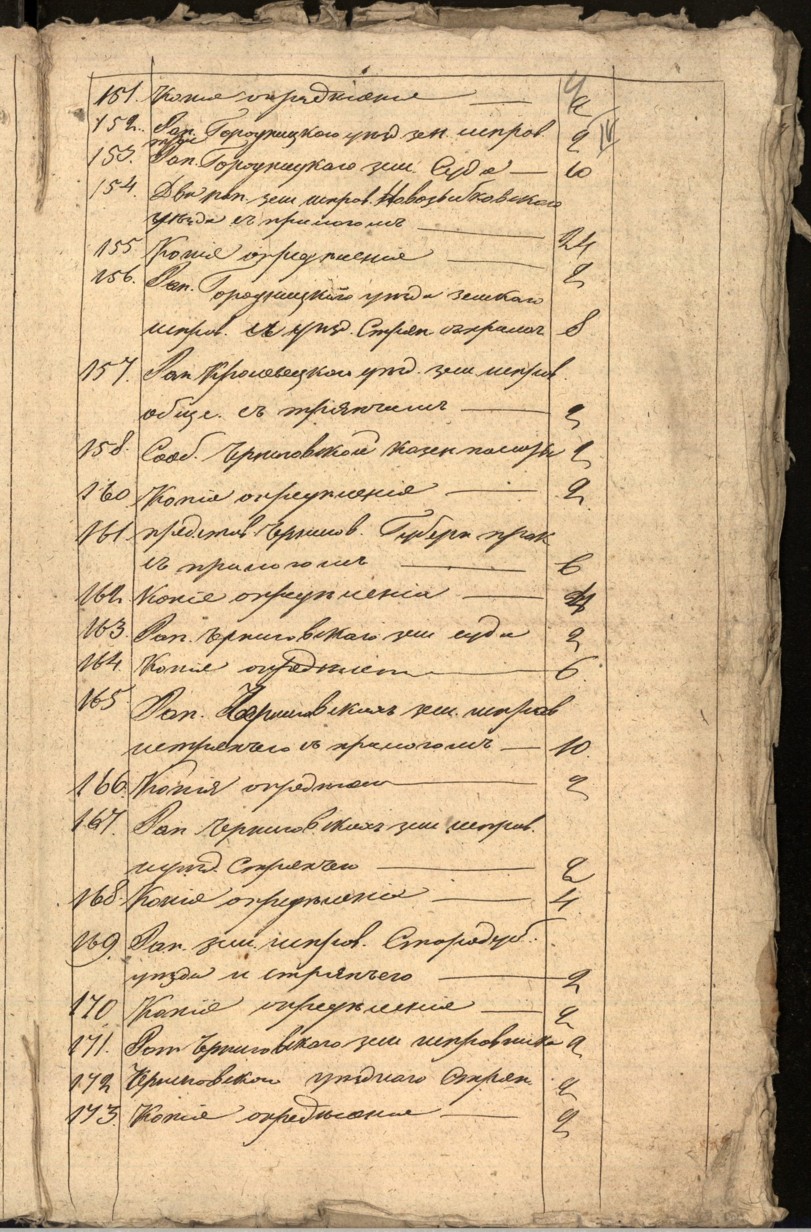 151. Копіе опредѣленіе — 2
152. Рап. Городницкого уѣзд зем. испров. 2
153. Рап. Городницкаго зем. Суда — 10
154. Два рап. зем. испров. Новозыбковского
уѣзда съ прилогомъ — 24
155. Копіе опредѣленіе — 2
156. Рап. Городницкого уѣзда земскаго
испров. и уѣзд. Стряп 8
157. Рап Кролевецкого уѣзд. зем. испров.
обще. съ стряпчимъ — 2
158. Сооб. Черниговской казен палаты 2
160 Копіе опредѣленіе — 2.
161 представ. Чернигов. Губерн прок
съ прилогомъ — 6
162. Копіе опредѣленіа — 4
163. Рап. Черниговскаго зем суда 2
164. Копіе — 6.
165 Рап. Черниговскихъ зем. испров
истряпчего съ прилогомъ — 10.
166. Копія — 2
167. Рап Черниговскихъ зем испров.
иуѣзд. Стряпчего — 2
168. Копіе опредѣленіе — 4
169. Рап. зем. испров. Стародуб.
уѣзда и стряпчего — 2
170 Копіе опредѣленіе — 2
171. Рап Черниговскаго зем исправника 2
172 Черниговского уѣздного Стряп. 2
173. Копіе опредѣленіе — 2